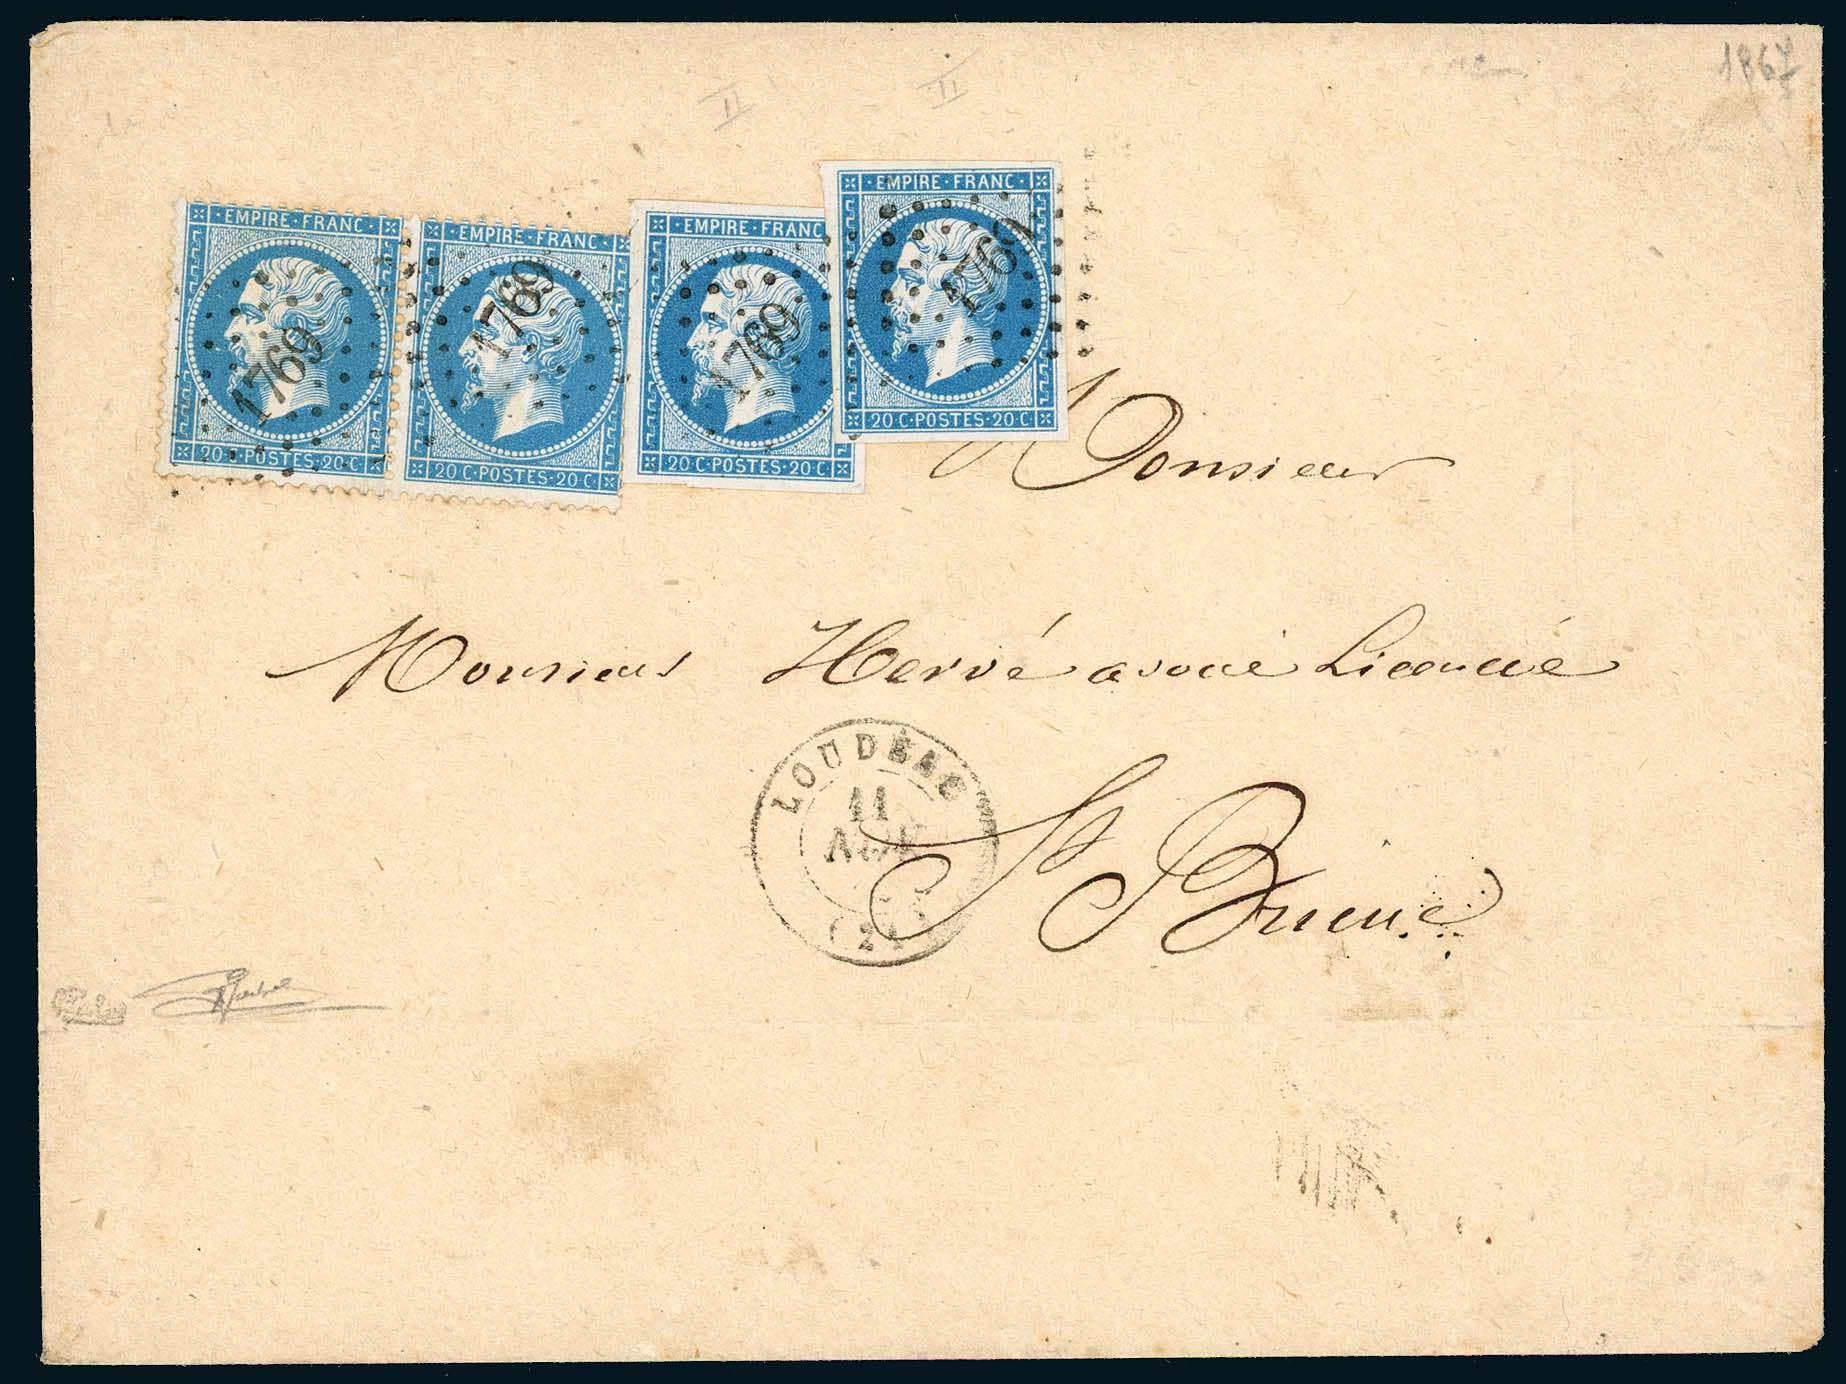 1867
II II
EMPIRE · FRANC
EMPIRE · FRANC
EMPIRE · FRANC
EMPIRE · FRANC
1769
1769
1769
1769
20 C · POSTES · 20 C
20 C · POSTES · 20 C
20 C · POSTES · 20 C
20 C · POSTES · 20 C
Monsieur
Monsieur Hervé avoué Licencié
LOUDÉAC
11
AOUT
(21)
St Brieuc